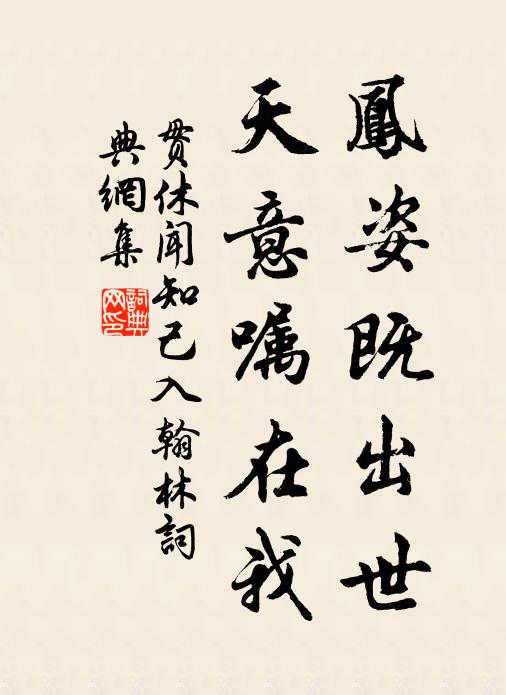 鳳姿既出世
天意嘱在我
贯休闻知己入翰林詞
典網集
詞典
网印